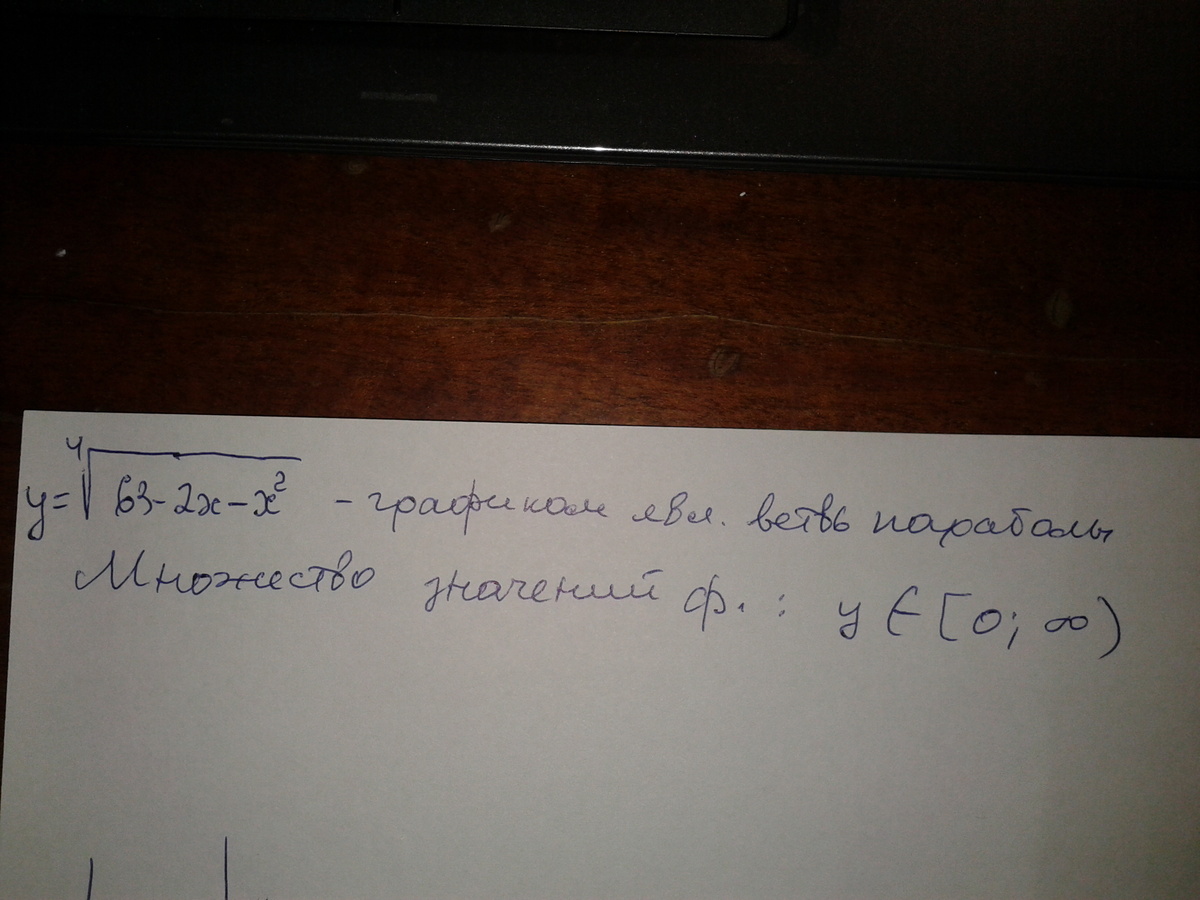 y = ⁴√(63-2x-x²) - графиком явл. ветвь параболы
Множество значений ф. : y ∈ [0; ∞)